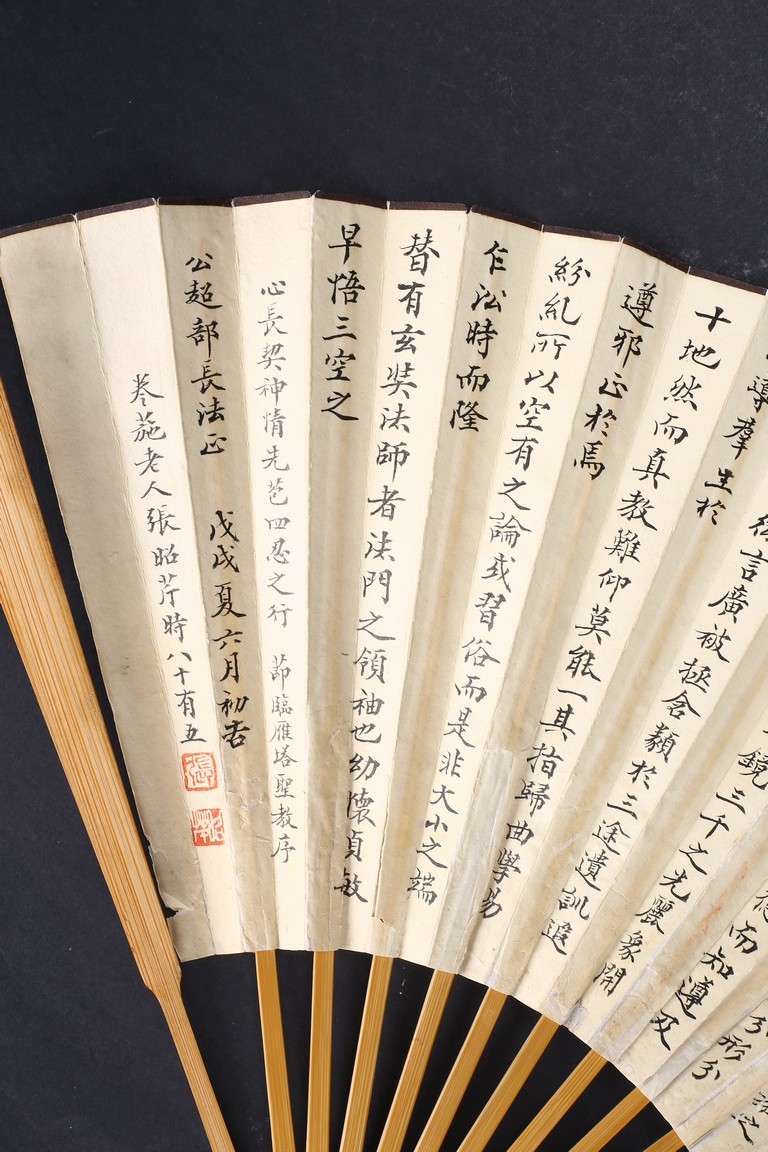 分形分
德而知遵及
鏡三千之光麗象開
言廣被拯含類於三途遺訓遐
導群生於
十地然而真教難仰莫能一其指歸曲學易
遵邪正於焉
紛糺所以空有之論或習俗而是非大小之端
乍沿時而隆
替有玄奘法師者法門之領袖也幼懷貞敏
早悟三空之
心長契神情先苞四忍之行 節臨雁塔聖教序
公超部長法正 戊戌夏六月初吉
卷葹老人張昭芹時八十有五
張
昭芹